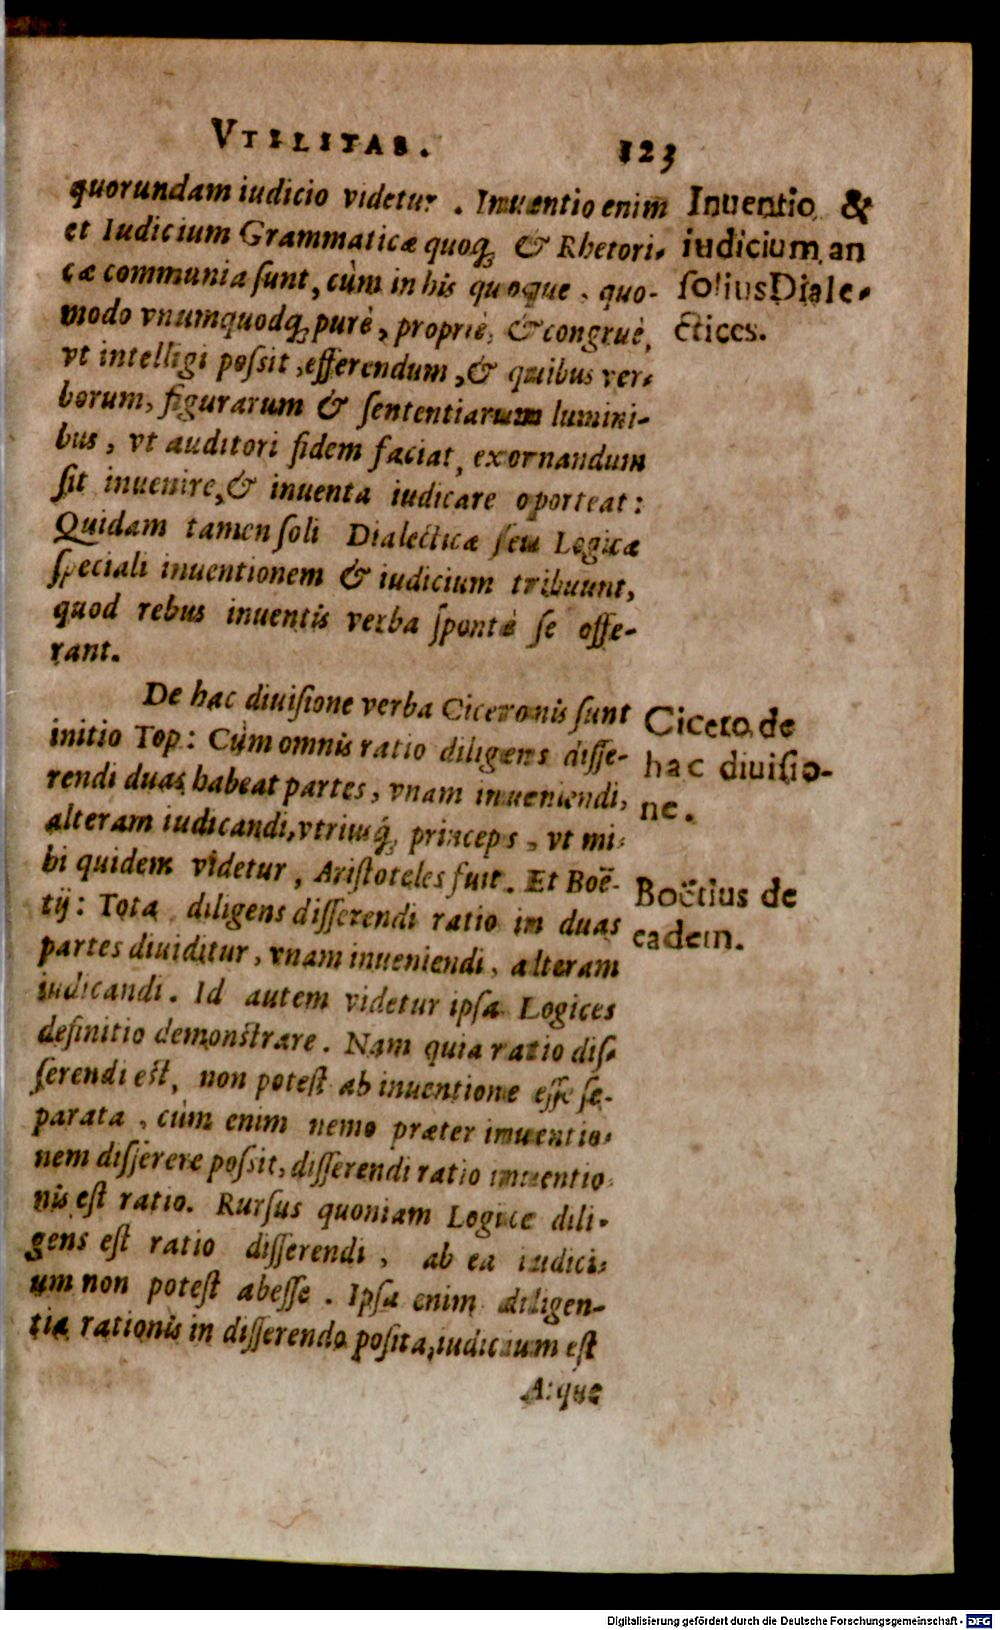 VTILITAS. 123
quorundam iudicio videtur. Inuentio enim
et Iudicium Grammaticæ quoq́ꝫ & Rhetori-
cæ communia ſunt, cùm in his quoque, quo-
modo vnumquodq́ꝫ purè, propriè, & congruè,
vt intelligi poſsit, efferendum, & quibus ver-
borum, figurarum & ſententiarum lumini-
bus, vt auditori fidem faciat, exornandum
ſit inuenire, & inuenta iudicare oporteat:
Quidam tamen ſoli Dialecticæ ſeu Logicæ
ſpeciali inuentionem & iudicium tribuunt,
quod rebus inuentis verba ſpontè ſe offe-
rant.
Inuentio &
iudicium an
ſolius Diale-
ctices.
De hac diuiſione verba Ciceronis ſunt
initio Top: Cùm omnis ratio diligens diſſe-
rendi duas habeat partes, vnam inueniendi,
alteram iudicandi, vtriuſq́ꝫ princeps, vt mi-
hi quidem videtur, Ariſtoteles fuit. Et Boë-
tij: Tota diligens diſſerendi ratio in duas
partes diuiditur, vnam inueniendi, alteram
iudicandi. Id autem videtur ipſa Logices
definitio demonſtrare. Nam quia ratio diſ-
ſerendi eſt, non poteſt ab inuentione eſſe ſe-
parata, cùm enim nemo præter inuentio-
nem diſſerere poſsit, diſſerendi ratio inuentio-
nis eſt ratio. Rurſus quoniam Logice dili-
gens eſt ratio diſſerendi, ab ea iudici-
um non poteſt abeſſe. Ipſa enim diligen-
tia rationis in diſſerendo poſita, iudicium eſt
Atque
Cicero de
hac diuiſio-
ne.
Boëtius de
eadem.
Digitalisierung gefördert durch die Deutsche Forschungsgemeinschaft - DFG